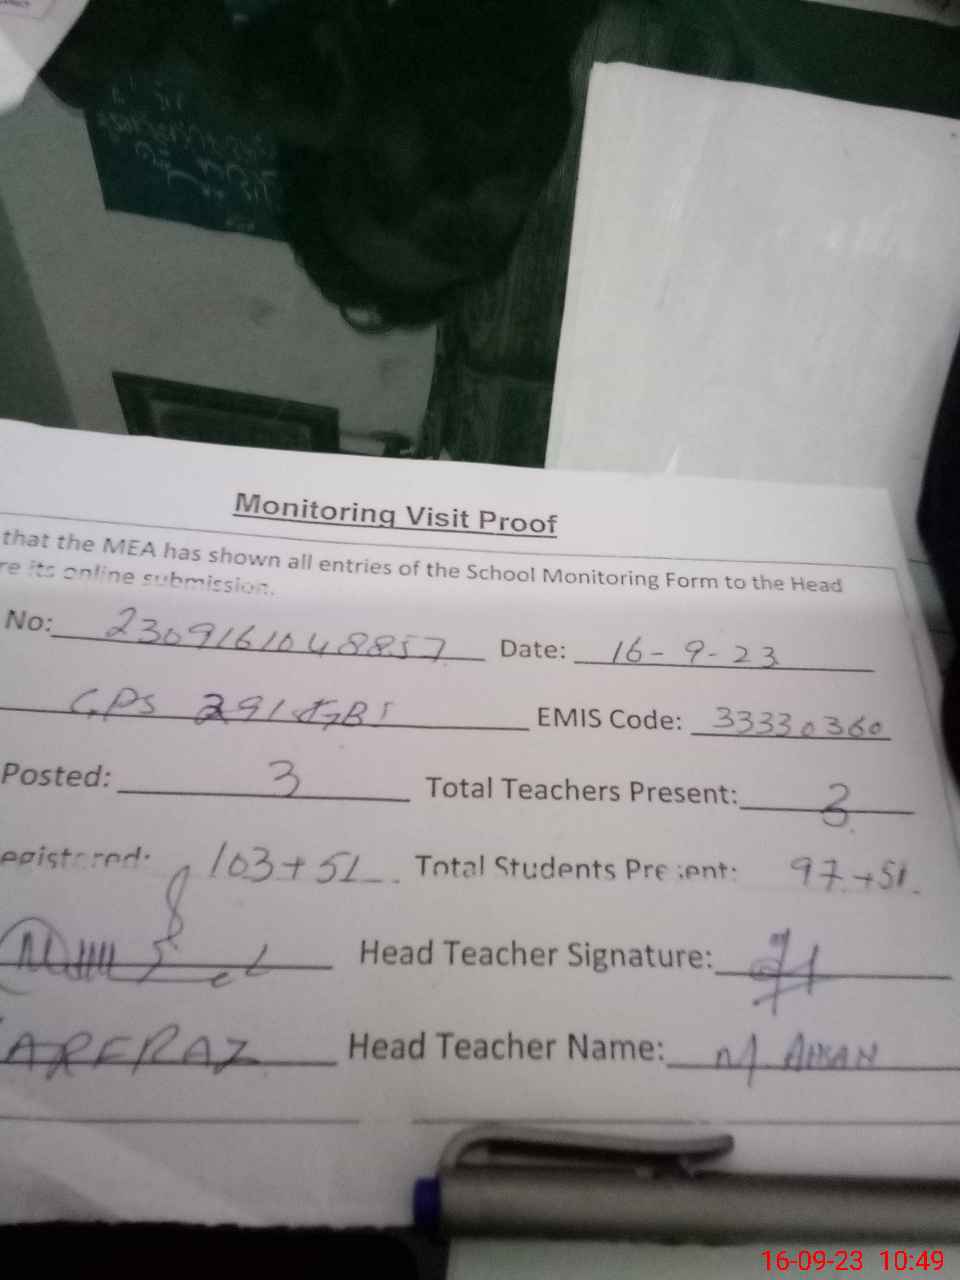 Monitoring Visit Proof
that the MEA has shown all entries of the School Monitoring Form to the Head
re its online submission.
No: 2309161048857 Date: 16-9-23
GPS 291 GBI EMIS Code: 33330360
Posted: 3 Total Teachers Present: 3
egistered: 103+51 Total Students Present: 97+51
Head Teacher Signature:
ARFRAZ Head Teacher Name: M.
16-09-23 10:49